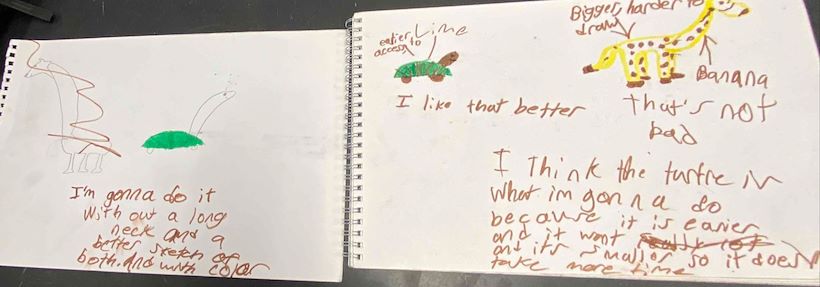 I'm gonna do it
with out a long
neck and a
better sketch of
both. And with color
easier to
access
Lime
I like that better
Bigger, harder to
draw
Banana
that's not
bad
I think the turtle is
what im gonna do
because it is easier
and it wont
and its smaller so it doesn
take more time